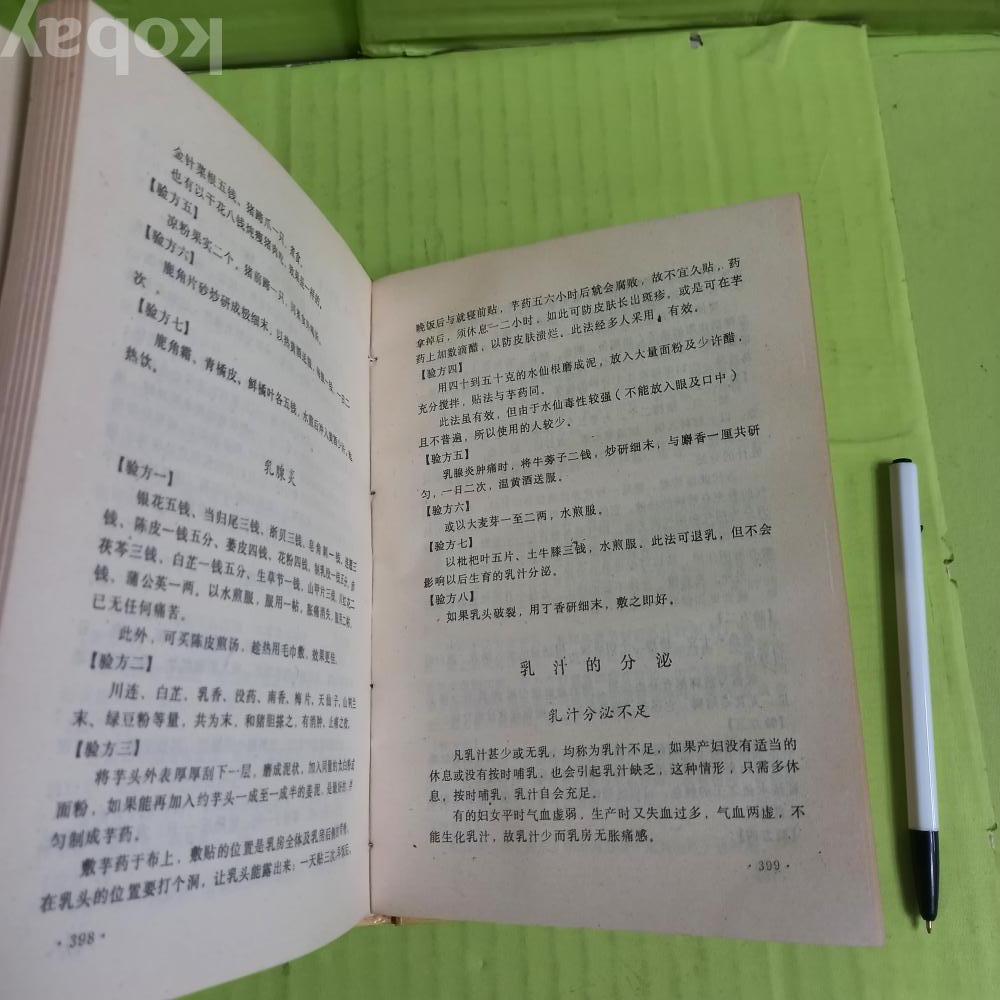 kobay
金针菜根五钱、猪蹄爪一只，煮食。
也有以干花八钱炖瘦猪肉吃，效果是一样的。
【验方五】
凉粉果实二个，猪前蹄一只，
【验方六】
鹿角片砂炒研成极细末，以热黄酒送服，每服一钱，一至二
次
【验方七】
鹿角霜，青橘皮，鲜橘叶各五钱，水煎后冲入黄酒少许，
热饮。
乳腺炎
【验方一】
银花五钱、当归尾三钱、浙贝三钱、皂角刺一钱、连翘三
钱、陈皮一钱五分、蒌皮四钱、花粉四钱、制乳没一钱五分、赤
茯苓三钱、白芷一钱五分、生草节一钱、山甲片三钱、
钱、蒲公英一两。以水煎服，服用一帖，胀痛消失，服至二帖，
已无任何痛苦。
此外，可买陈皮煎汤，趁热用毛巾敷，效果更佳。
【验方二】
川连、白芷、乳香、没药、南香、梅片、天仙子、山
末、绿豆粉等量，共为末、和猪胆搽之，有消肿、止痛之仗。
【验方三】
将芋头外表厚厚刮下一层，磨成泥状，加入同量的太白粉或
面粉，如果能再加入约芋头一成至一成半的姜泥，是最好的，拌
匀制成芋药。
敷芋药于布上，敷贴的位置是乳房全体及乳房后侧
在乳头的位置要打个洞，让乳头能露出来：一天贴三次，早饭后、
·398·
晚饭后与就寝前贴，芋药五六小时后就会腐败，故不宜久贴，药
拿掉后，须休息一二小时，如此可防皮肤长出斑疹，或是可在芋
药上加数滴醋，以防皮肤溃烂。此法经多人采用，有效。
【验方四】
用四十到五十克的水仙根磨成泥，放入大量面粉及少许醋，
充分搅拌，贴法与芋药同。
此法虽有效，但由于水仙毒性较强（不能放入眼及口中）
且不普遍，所以使用的人较少。
【验方五】
乳腺炎肿痛时，将牛蒡子二钱，炒研细末，与麝香一厘共研
匀，一日二次，温黄酒送服。
【验方六】
或以大麦芽一至二两，水煎服。
【验方七】
以枇杷叶五片、土牛膝三钱，水煎服。此法可退乳，但不会
影响以后生育的乳汁分泌。
【验方八】
如果乳头破裂，用丁香研细末，敷之即好。
乳汁的分泌
乳汁分泌不足
凡乳汁甚少或无乳，均称为乳汁不足，如果产妇没有适当的
休息或没有按时哺乳，也会引起乳汁缺乏，这种情形，只需多休
息，按时哺乳，乳汁自会充足。
有的妇女平时气血虚弱，生产时又失血过多，气血两虚，不
能生化乳汁，故乳汁少而乳房无胀痛感。
·399·